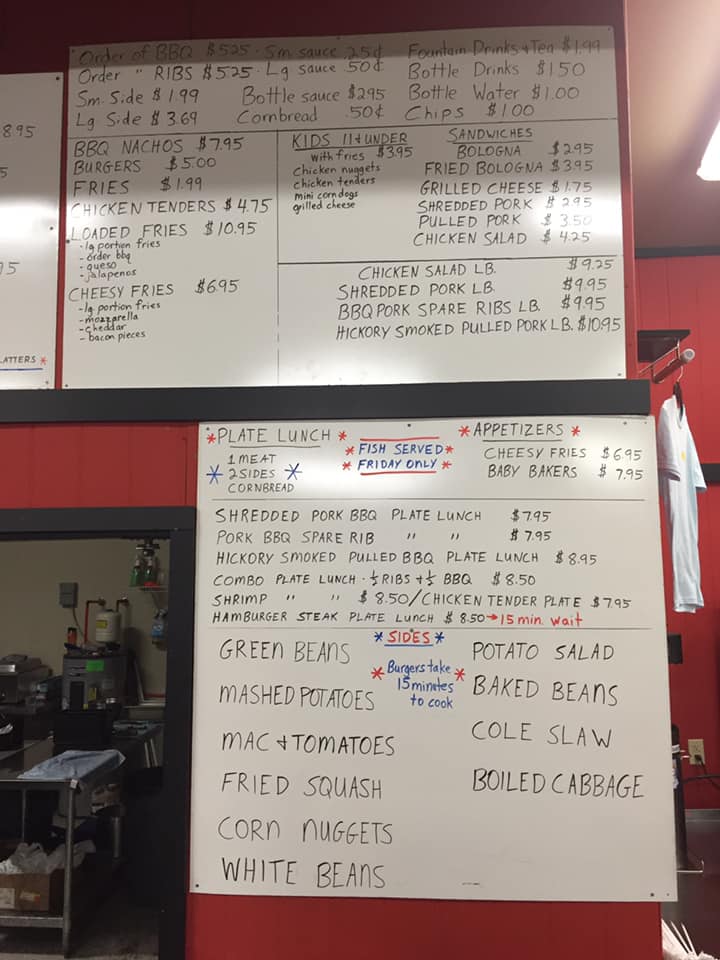 895
5
95
LATTERS *
Order of BBQ $525 · Sm sauce .25¢ Fountain Drinks + Tea $1.99
Order " RIBS $525 · Lg sauce .50¢ Bottle Drinks $150
Sm. Side $1.99 Bottle sauce $295 Bottle Water $1.00
Lg Side $3.69 Cornbread .50¢ Chips $1.00
BBQ NACHOS $7.95
BURGERS $5.00
FRIES $1.99
CHICKEN TENDERS $4.75
LOADED FRIES $10.95
- lg portion fries
- order bbq
- queso
- jalapenos
CHEESY FRIES $6.95
- lg portion fries
- mozzarella
- cheddar
- bacon pieces
KIDS 11 & UNDER
with fries $395
chicken nuggets
chicken tenders
mini corn dogs
grilled cheese
SANDWICHES
BOLOGNA $2.95
FRIED BOLOGNA $3.95
GRILLED CHEESE $1.75
SHREDDED PORK $2.95
PULLED PORK $3.50
CHICKEN SALAD $4.25
CHICKEN SALAD LB. $9.25
SHREDDED PORK LB. $9.95
BBQ PORK SPARE RIBS LB. $9.95
HICKORY SMOKED PULLED PORK LB. $10.95
*PLATE LUNCH*
1 MEAT
* 2 SIDES *
CORNBREAD
*FISH SERVED*
*FRIDAY ONLY*
*APPETIZERS*
CHEESY FRIES $6.95
BABY BAKERS $7.95
SHREDDED PORK BBQ PLATE LUNCH $7.95
PORK BBQ SPARE RIB " " $7.95
HICKORY SMOKED PULLED BBQ PLATE LUNCH $8.95
COMBO PLATE LUNCH · ½ RIBS + ½ BBQ $8.50
SHRIMP " " $8.50/CHICKEN TENDER PLATE $7.95
HAMBURGER STEAK PLATE LUNCH $8.50→15 min. wait
*SIDES*
*Burgers take*
15 minutes
to cook
GREEN BEANS
MASHED POTATOES
MAC & TOMATOES
FRIED SQUASH
CORN NUGGETS
WHITE BEANS
POTATO SALAD
BAKED BEANS
COLE SLAW
BOILED CABBAGE